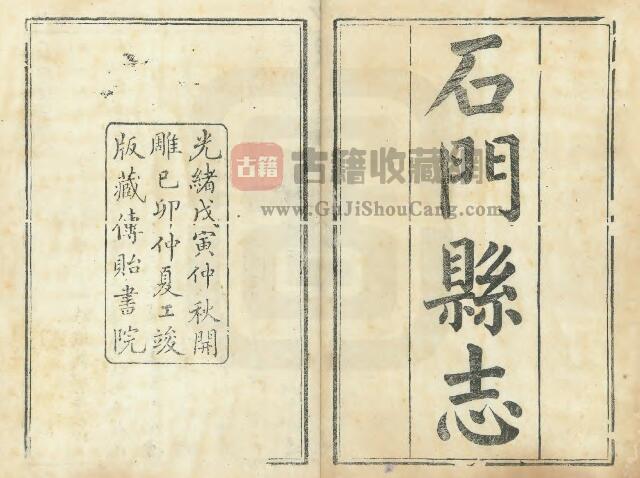 石門縣志
光緒戊寅仲秋開
雕己卯仲夏工竣
版藏傳貽書院
古籍
古籍收藏網
www.GuJiShouCang.com